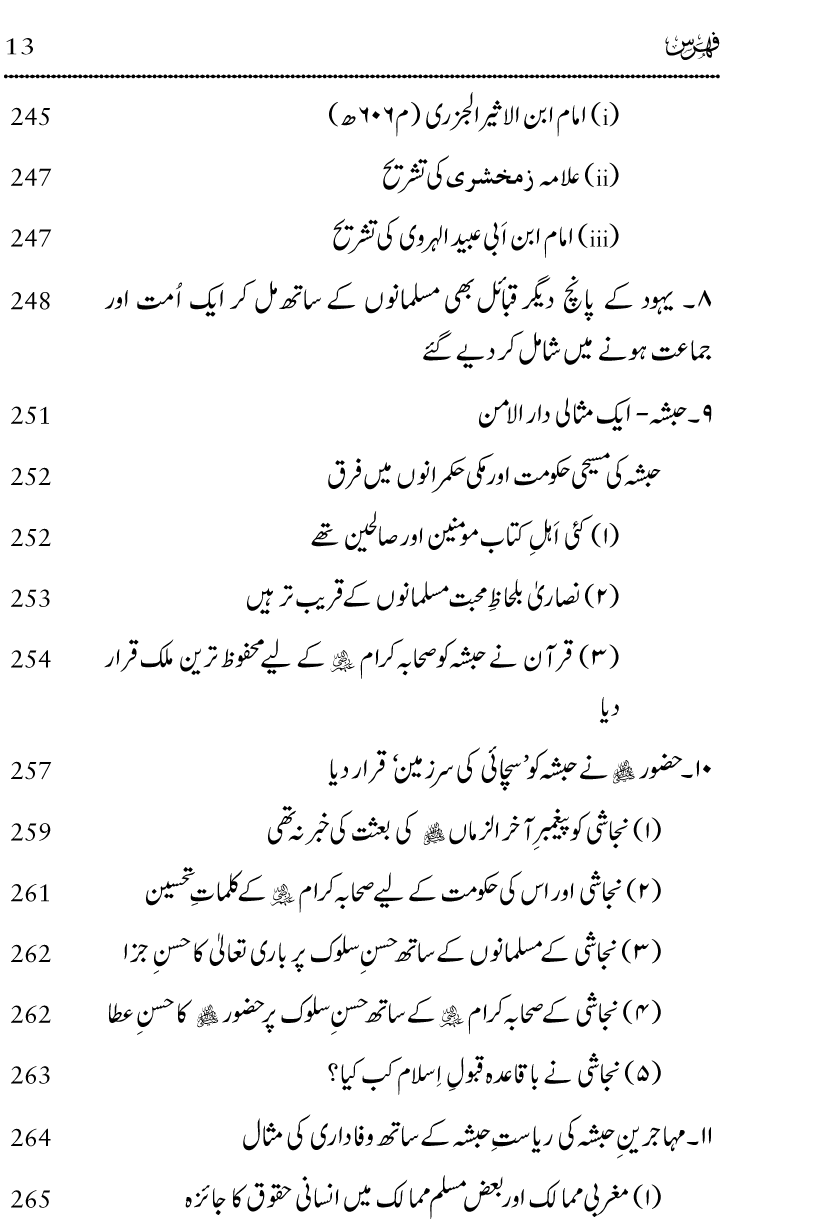 فہرس 13
(i) امام ابن الاثیر الجزری (م ۶۰۶ھ) 245
(ii) علامہ زمخشری کی تشریح 247
(iii) امام ابن اَبی عبید الہروی کی تشریح 247
۸۔ یہود کے پانچ دیگر قبائل بھی مسلمانوں کے ساتھ مل کر ایک اُمت اور 248
جماعت ہونے میں شامل کر دیے گئے
۹۔ حبشہ - ایک مثالی دار الامن 251
حبشہ کی مسیحی حکومت اور مکی حکمرانوں میں فرق 252
(۱) کئی اَہلِ کتاب مومنین اور صالحین تھے 252
(۲) نصاریٰ بلحاظِ محبت مسلمانوں کے قریب تر ہیں 253
(۳) قرآن نے حبشہ کو صحابہ کرام ؓ کے لیے محفوظ ترین ملک قرار 254
دیا
۱۰۔ حضور ﷺ نے حبشہ کو ’سچائی کی سرزمین‘ قرار دیا 257
(۱) نجاشی کو پیغمبرِ آخر الزماں ﷺ کی بعثت کی خبر نہ تھی 259
(۲) نجاشی اور اس کی حکومت کے لیے صحابہ کرام ؓ کے کلماتِ تحسین 261
(۳) نجاشی کے مسلمانوں کے ساتھ حسنِ سلوک پر باری تعالیٰ کا حسنِ جزا 262
(۴) نجاشی کے صحابہ کرام ؓ کے ساتھ حسنِ سلوک پر حضور ﷺ کا حسنِ عطا 262
(۵) نجاشی نے باقاعدہ قبولِ اِسلام کب کیا؟ 263
۱۱۔ مہاجرینِ حبشہ کی ریاستِ حبشہ کے ساتھ وفاداری کی مثال 264
(۱) مغربی ممالک اور بعض مسلم ممالک میں انسانی حقوق کا جائزہ 265